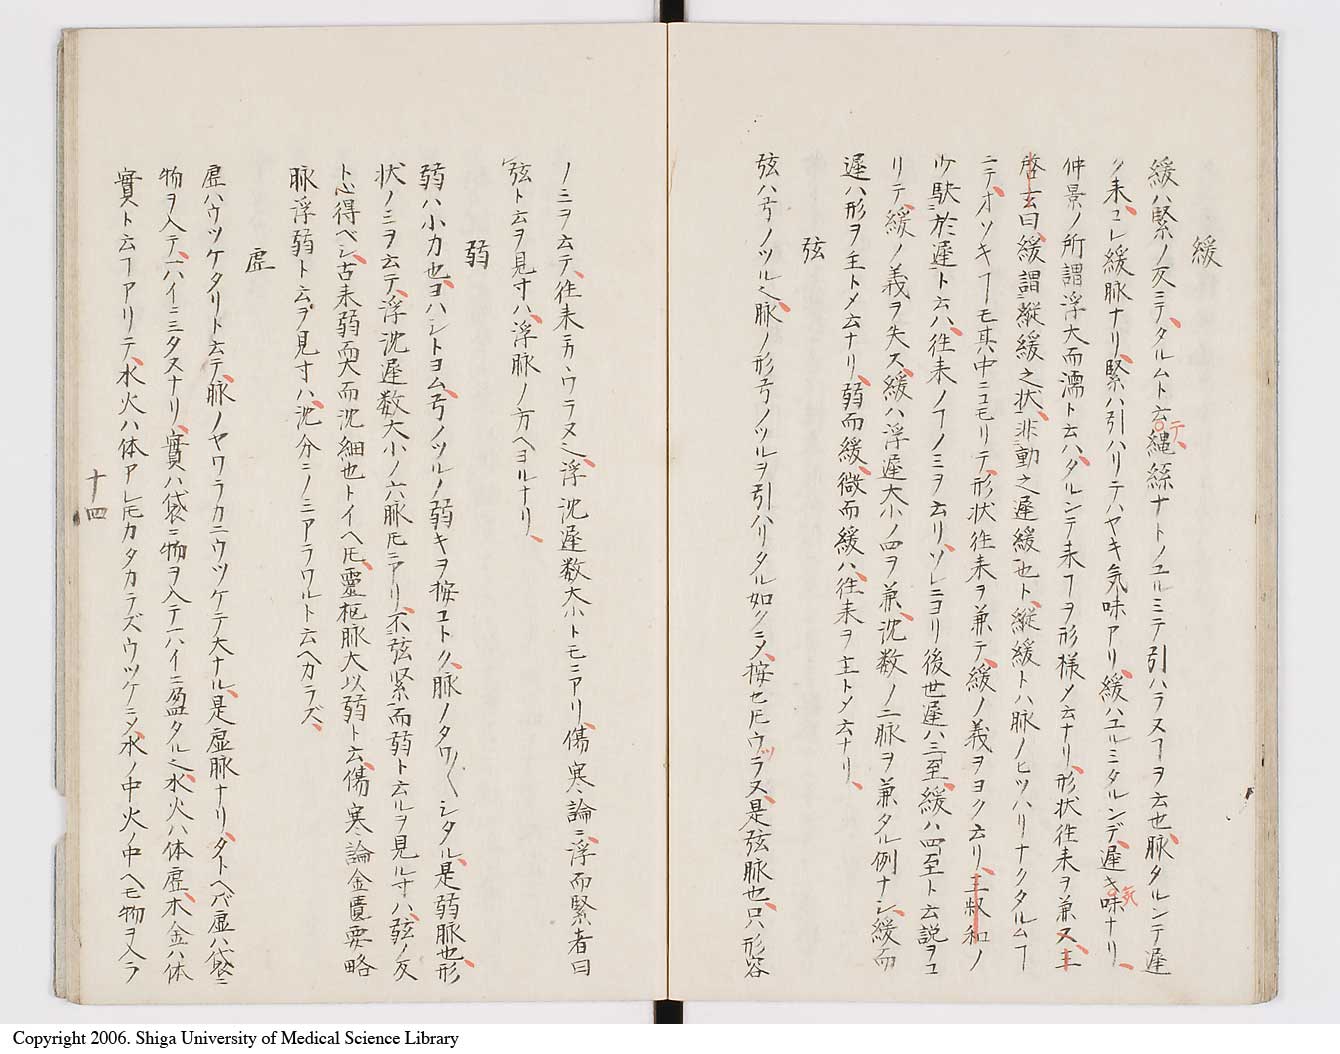 緩
緩ハ緊ノ反ニテ、タルムト云テ、縄絲ナトノユルミテ引ハラヌヿヲ云也、脉タルンテ遲
ク来ル、コレ緩脉ナリ、緊ハ引ハリテハヤキ気味アリ、緩ハユルミタルンデ、遲キ気味ナリ、
仲景ノ所謂浮大而濡ト云ハ、タルンテ来ヿヲ形様メ云ナリ、形状往来ヲ兼ス、王
啓玄曰、緩謂縱緩之状、非動之遲緩也ト、縱緩トハ脉ノヒツハリナクタルムヿ
ニテ、オソキヿモ其中ニコモリテ、形状往来ヲ兼テ、緩ノ義ヲヨク云リ、王叔和ノ
少駃於遲ト云ハ、往来ノヿノミヲ云リ、ソレニヨリ後世遲ハ三至、緩ハ四至ト云説ヲコ
リテ、緩ノ義ヲ失ス、緩ハ浮遲大小ノ四ヲ兼、沈数ノ二脉ヲ兼タル例ナシ、緩而
遲ハ形ヲ主トメ云ナリ、弱而緩、微而緩ハ、往来ヲ主トメ云ナリ、
弦
弦ハ弓ノツル也、脉ノ形弓ノツルヲ引ハリタル如クニメ、按セ𪜈ウツラヌ、是弦脉也、只形容
ノミヲ云テ、往来ニカヽワラヌ也、浮沈遲数大小トモニアリ、傷寒論ニ、浮而緊者曰
弦ト云ヲ見寸ハ、浮脉ノ方ヘヨルナリ、
弱
弱ハ小力也、ヨハシトヨム、弓ノツルノ弱キヲ按コトク、脉ノタワ〱シタル、是弱脉也、形
状ノミヲ云テ、浮沈遲数大小ノ六脉𪜈ニアリ、不弦緊而弱ト云ルヲ見ル寸ハ、弦ノ反
ト心得ベシ、古来弱而大而沈細也トイヘ𪜈、靈枢脉大以弱ト云、傷寒論金匱要略
脉浮弱ト云ヲ見寸ハ、沈分ニノミアラワルト云ヘカラズ、
虚
虚ハウツケタリト云テ、脉ノヤワラカニウツケテ大ナル、是虚脉ナリ、タトヘバ虚ハ袋ニ
物ヲ入テ、一ハイニミタヌナリ、實ハ袋ニ物ヲ入テ一ハイニ盈タル也、水火ハ体虚、木金ハ体
實ト云ヿアリテ、水火ハ体アレ𪜈カタカラズウツケニメ、水ノ中火ノ中ヘモ物ヲ入ラ
十四
Copyright 2006. Shiga University of Medical Science Library